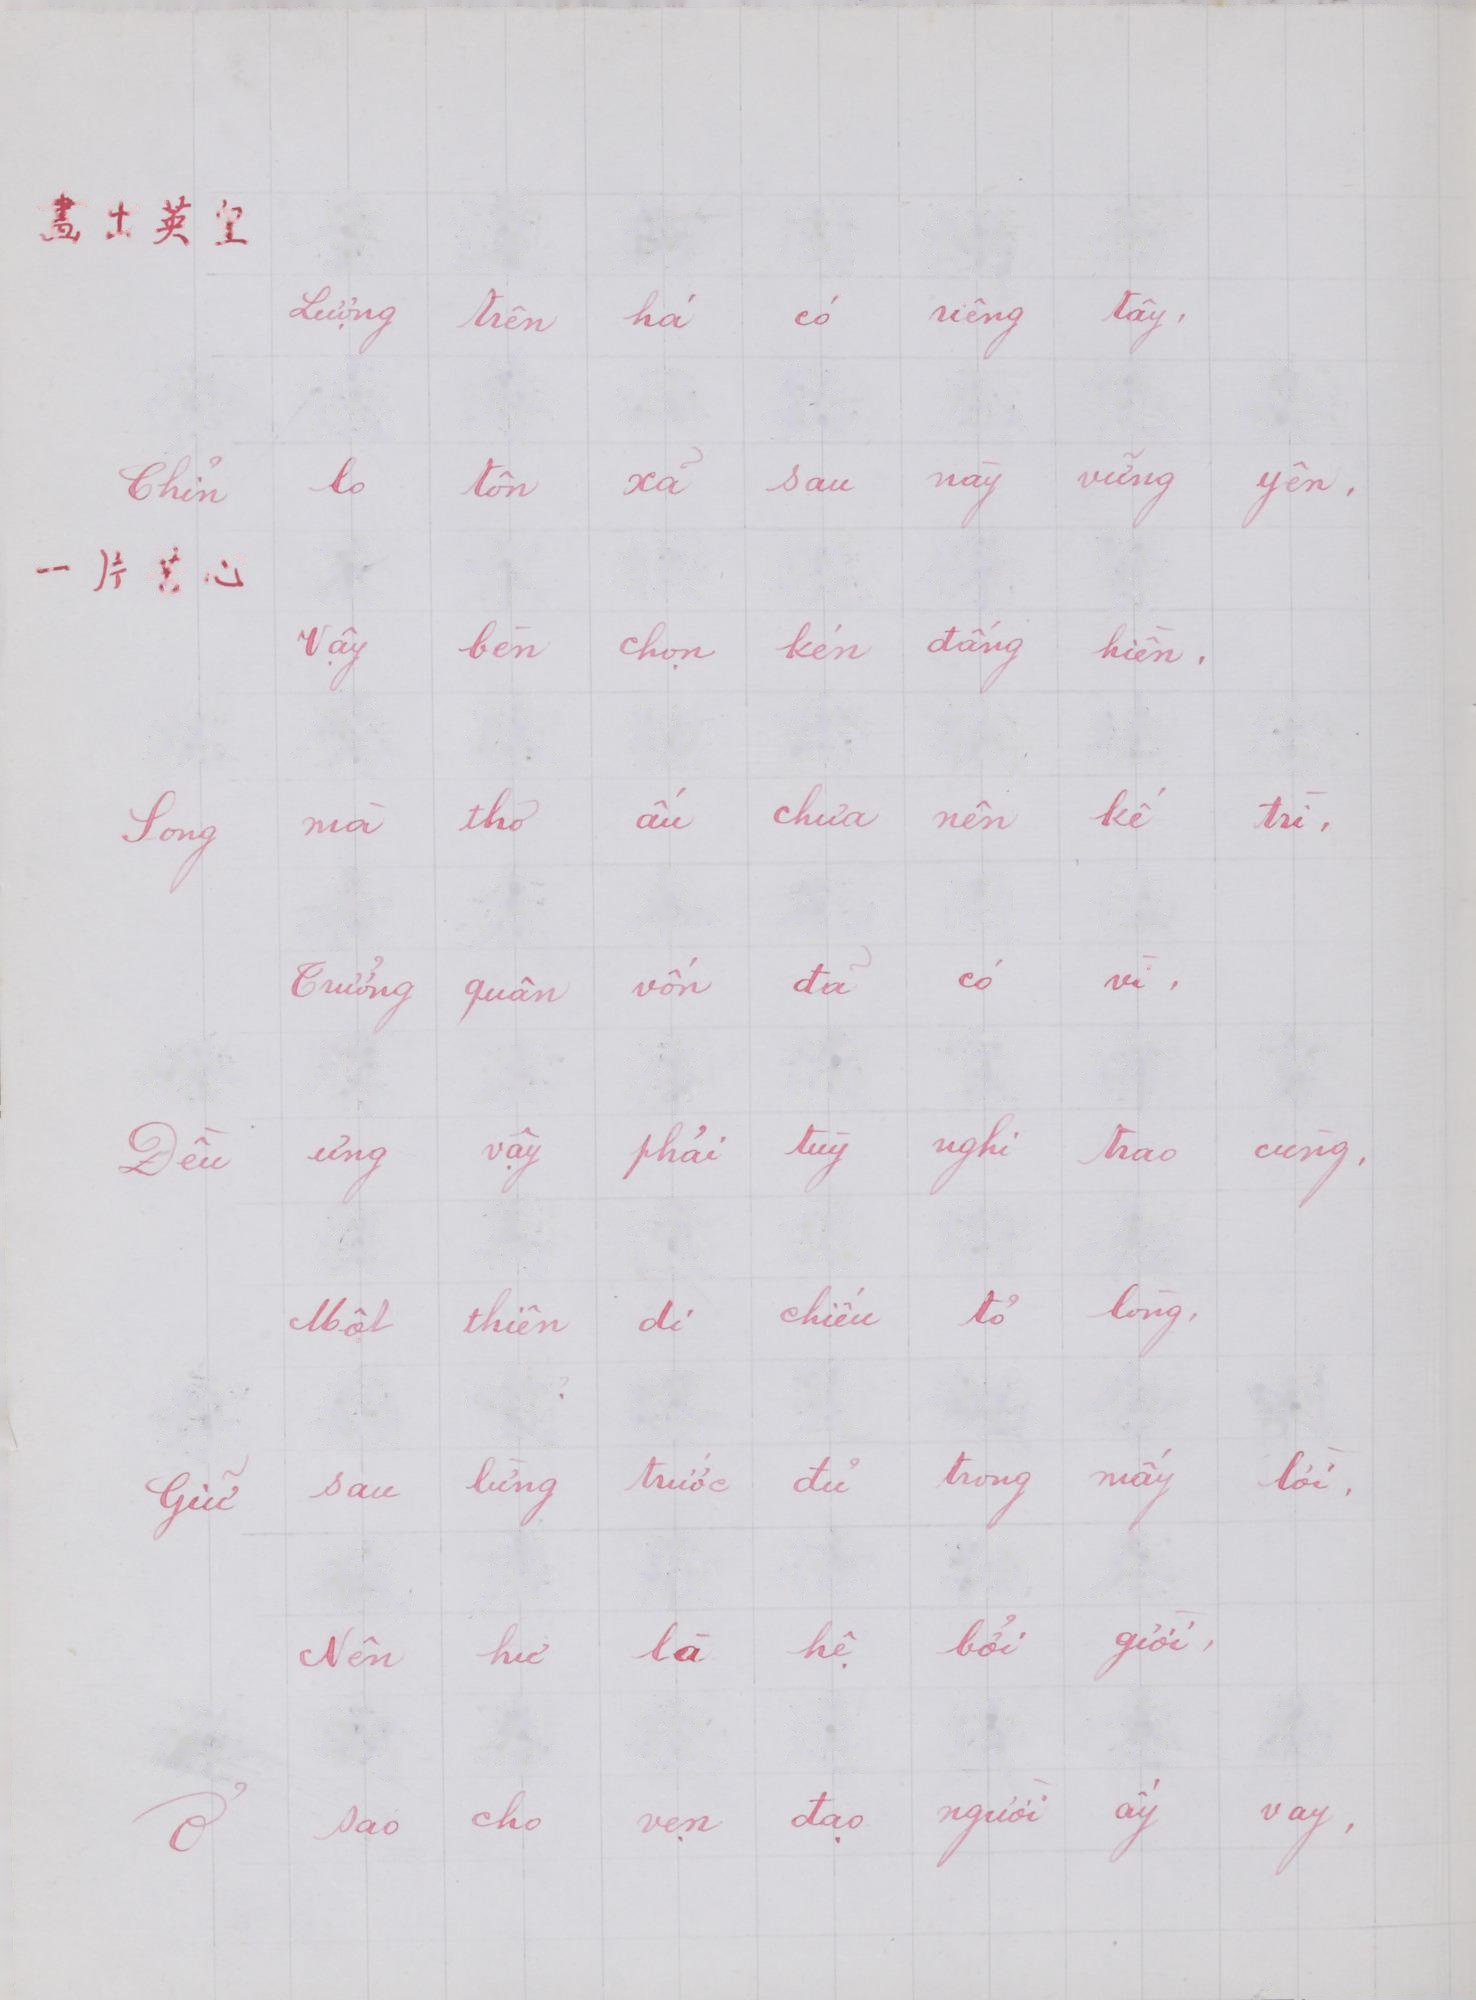 畫土英皇
Lượng trên há có riêng tây,
Chỉn lo tôn xã sau này vững yên,
一片苦心
Vậy bèn chọn kén đấng hiền,
Song mà thơ ấu chưa nên kế trì,
Trưởng quân vốn đã có vì,
Đều ưng vậy phải tùy nghi trao cùng,
Một thiên di chiếu tỏ lòng,
Giữ sau lừng trước đủ trong mấy lời,
Nên hư là hệ bởi giời,
Ở sao cho vẹn đạo người ấy vay,